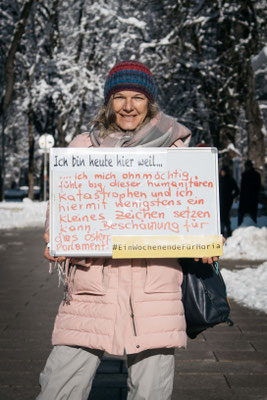 Ich bin heute hier weil...
... ich mich ohnmächtig
fühle bzg. dieser humanitären
Katastrophen und ich
hiermit wenigstens ein
kleines Zeichen setzen
kann. Beschämung für
das österr.
Parlament.
#EinWochenendeFürMoria